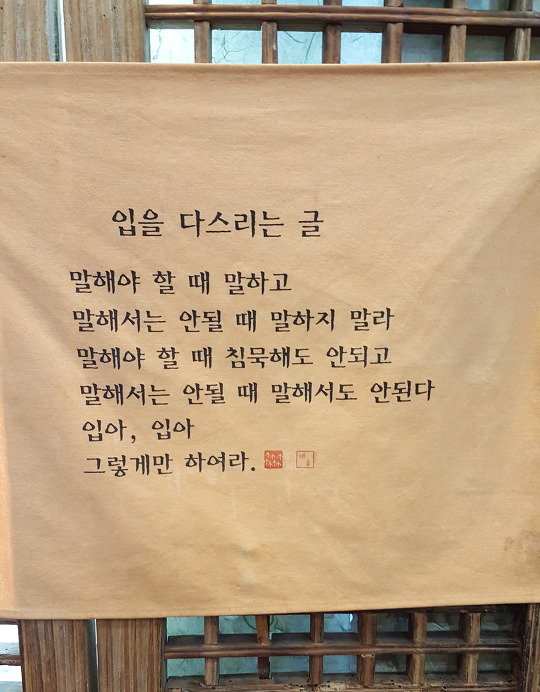 입을 다스리는 글
말해야 할 때 말하고
말해서는 안될 때 말하지 말라
말해야 할 때 침묵해도 안되고
말해서는 안될 때 말해서도 안된다
입아, 입아
그렇게만 하여라.